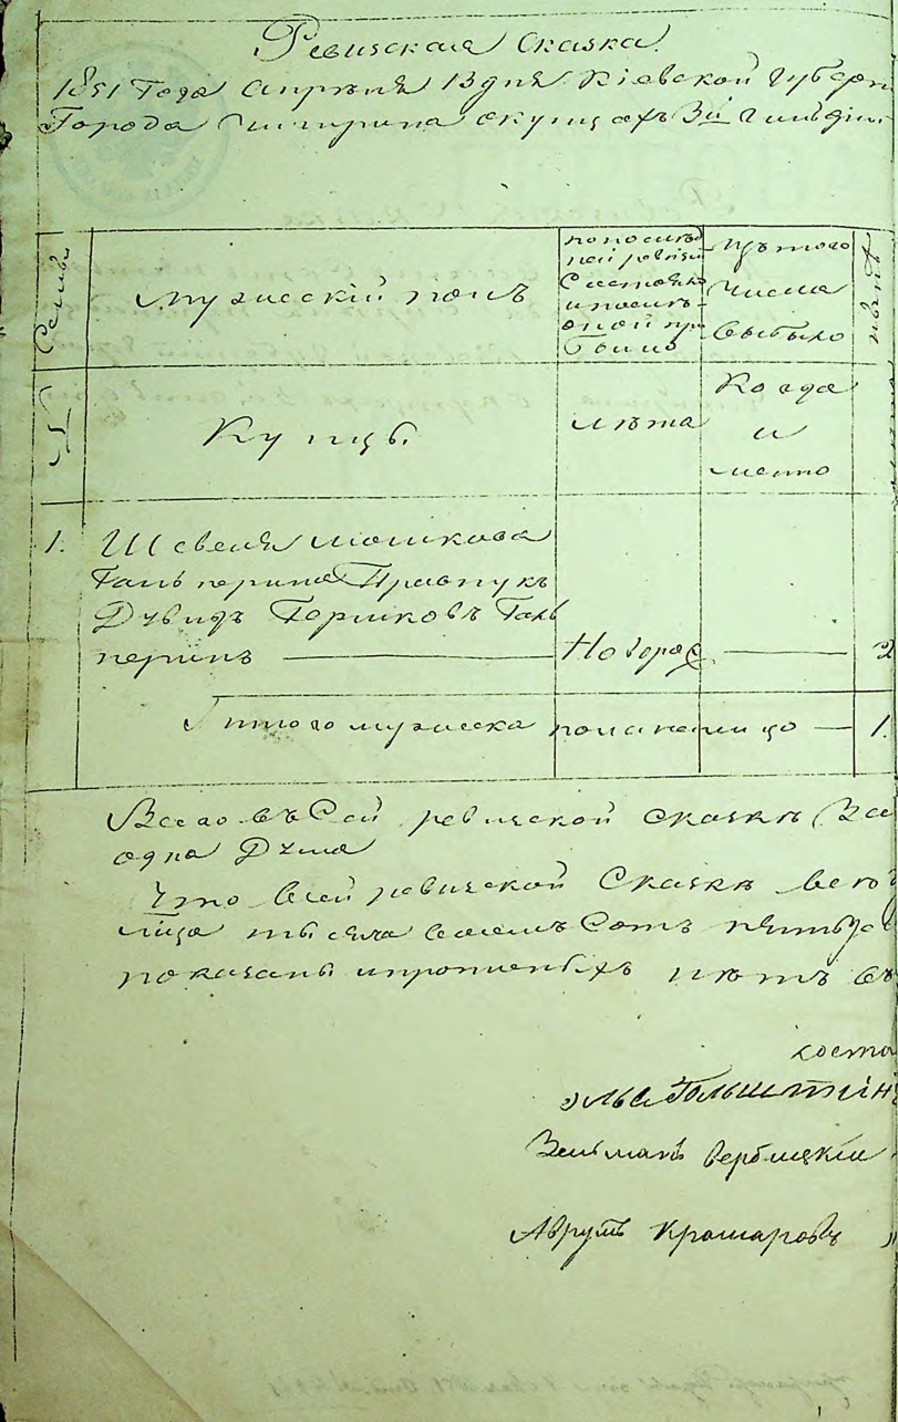 Ревизская Сказка.
1851 Года Апрѣля 13 дня Кіевской Губерн
Города Чигирина окупцахъ 3й Гильдіи
Семьи
мужескій полъ
попослѣд
ней ревизіи
Состояло
ипослѣ-
оной при
было
Изъ того
числа
выбыло
№
Купцы
лѣта
Когда
и
имянно
1. Шевеля Мошкова
Гальперина Правнукъ
Дувидъ Борисковъ Галь
перинъ — Новоро — 2
Итого мужеска пола налицо — 1.
Всего въ Сей ревизской Сказкѣ
одна Душа
Что Всей ревизской Сказкѣ всего
лица тысяча восемь Сотъ пятьде
показаны ипропиеныхъ нѣтъ въ
соста
Гольштейн
Зельманъ Вербицкій
Аврумъ Крамаровъ